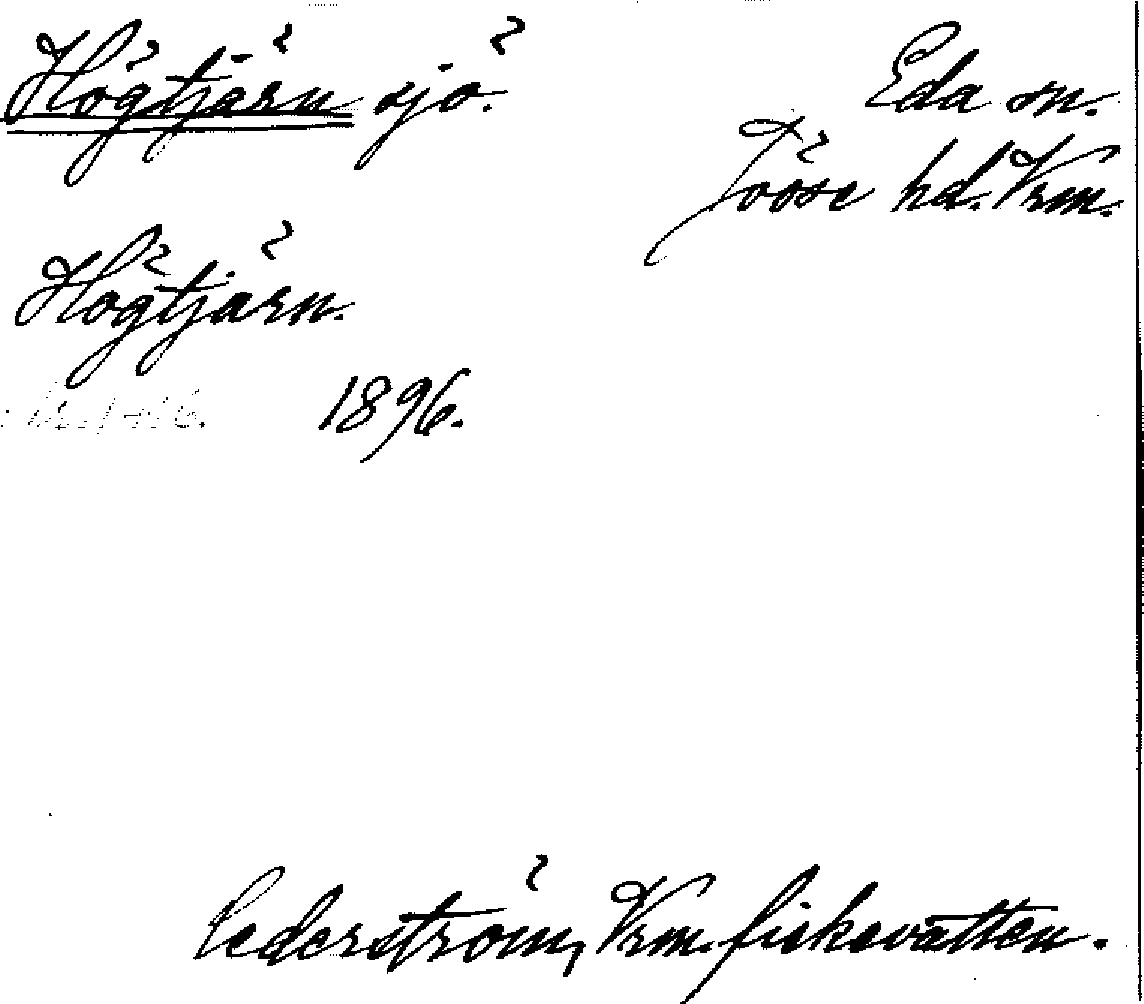 Högtjärn sjö.
Eda sn.
Jösse hd. Vrm.
Högtjärn.
1896.
Cederström, Vrm. fiskevatten.